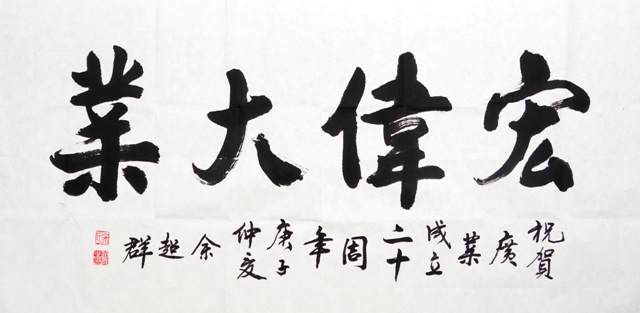 宏偉大業
祝賀廣業成立二十周年庚子仲夏余超群